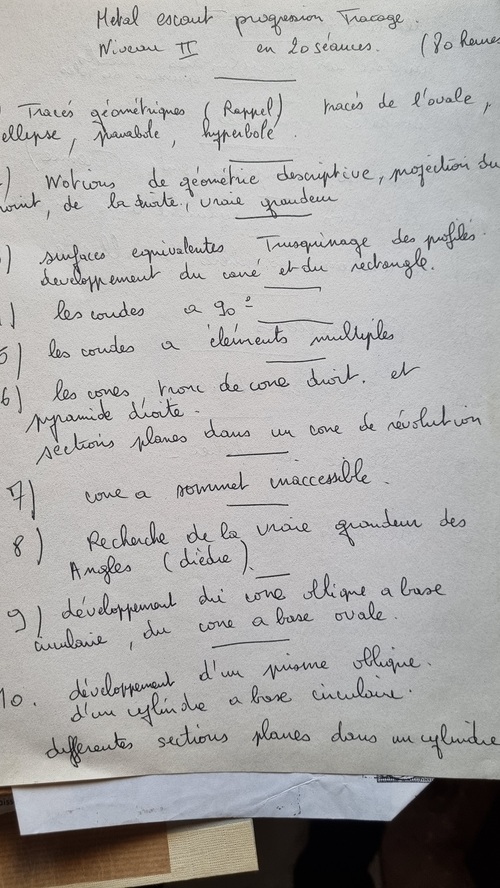 Metal escaut progression Tracage.
Niveau II en 20 séances. (80 heures
Tracés géométriques (Rappel) tracés de l'ovale,
ellipse, parabole, hyperbole.
Notions de géométrie descriptive, projection du
point, de la droite, vraie grandeur
surfaces equivalentes Trusquinage des profilés.
developpement du carré et du rectangle.
les coudes a 90°
5) les coudes a éléments multiples
6) les cones tronc de cone droit. et
pyramide droite.
sections planes dans un cone de révolution
7) cone a sommet inaccessible.
8) Recherche de la vraie grandeur des
Angles (dièdre).
9) développement du cone oblique a base
circulaire, du cone a base ovale.
10. développement d'un prisme oblique.
d'un cylindre a base circulaire.
differentes sections planes dans un cylindre